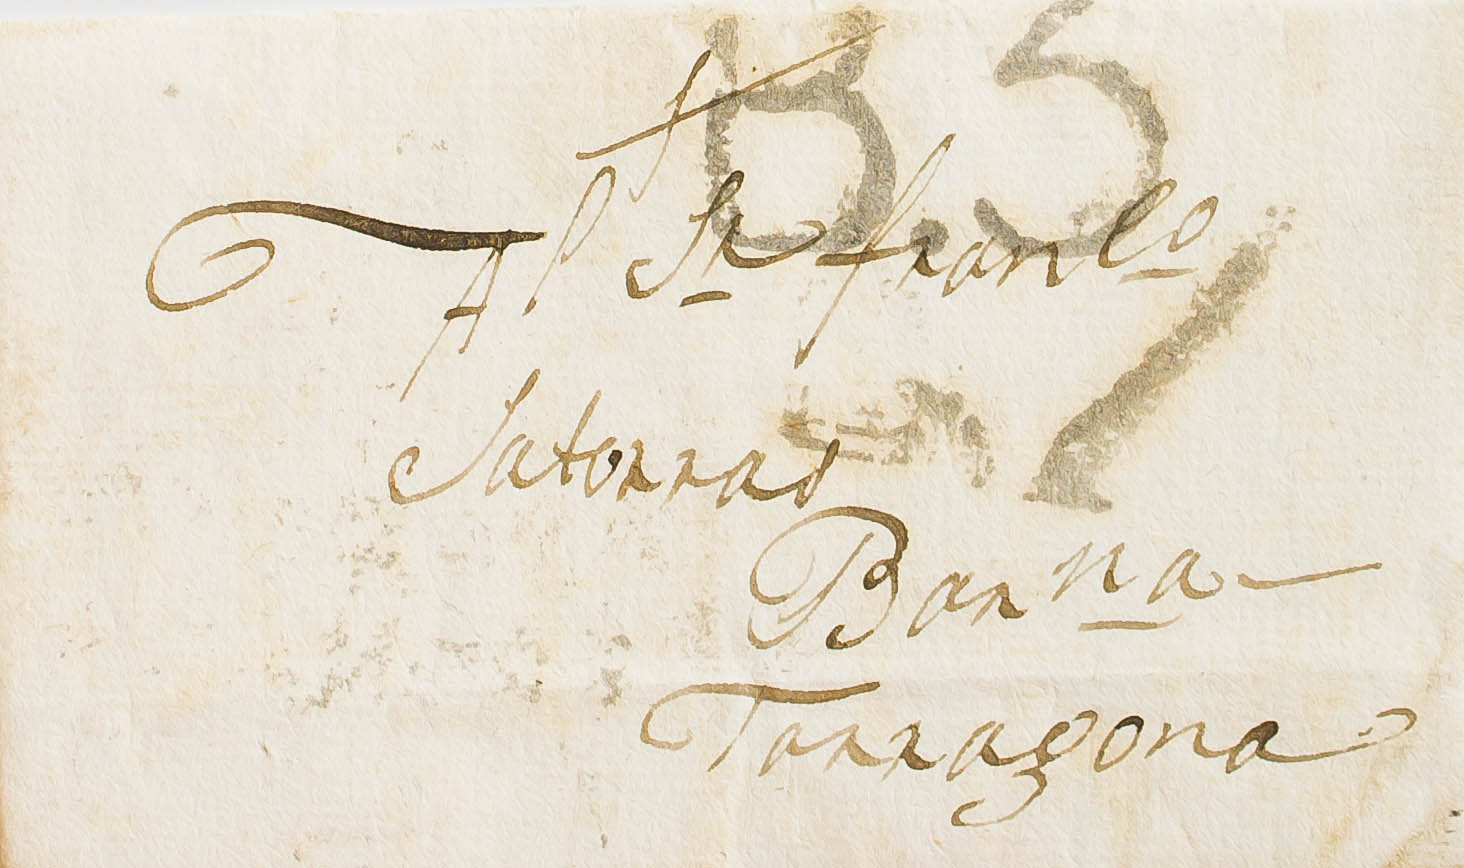 B 5
Al Sr. Franco
Satorras
Barna
Tarragona